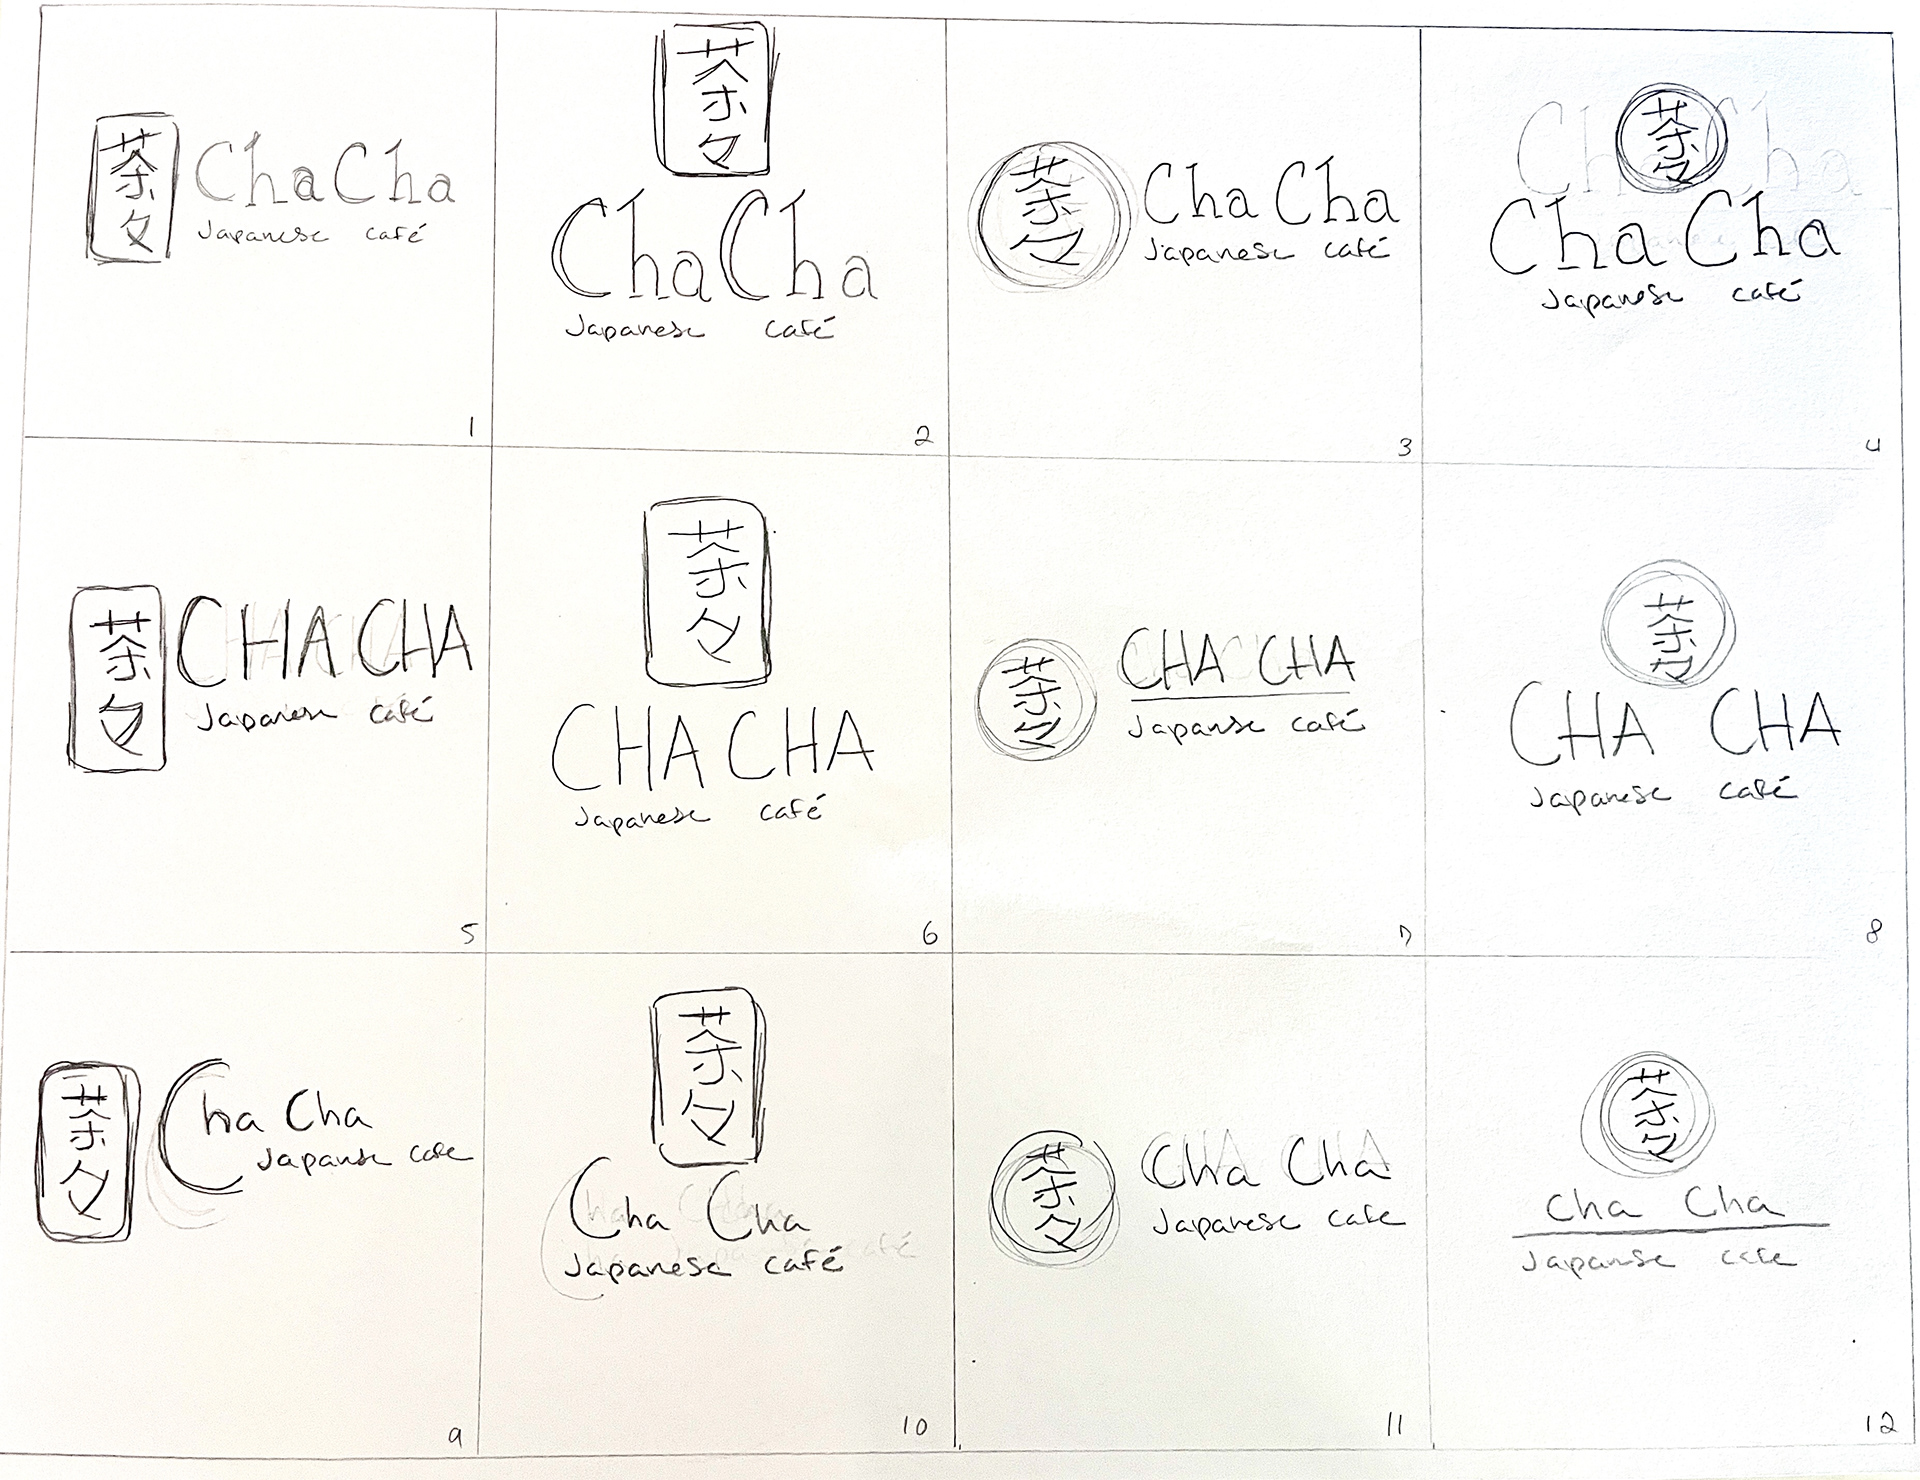 茶々
ChaCha
Japanese café
1
茶々
ChaCha
Japanese café
2
茶々
Cha Cha
Japanese café
3
茶々
Cha Cha
Japanese café
4
茶々
CHA CHA
Japanese café
5
茶々
CHA CHA
Japanese café
6
茶々
CHA CHA
Japanse café
7
茶々
CHA CHA
Japanese café
8
茶々
Cha Cha
Japanse cafe
9
茶々
Cha Cha
Japanese café
10
茶々
Cha Cha
Japanese cafe
11
茶々
Cha Cha
Japanse cafe
12